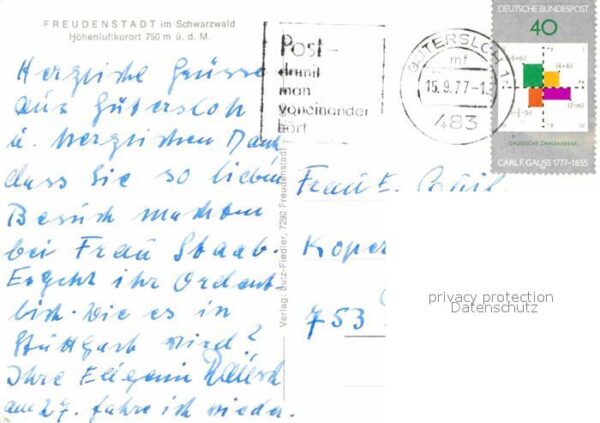 FREUDENSTADT im Schwarzwald
Höhenluftkurort 750 m ü. d. M.
Herzliche Grüsse
aus Gütersloh
u. herzlichen Dank
dass Sie so lieben
Besuch machen
bei Frau Staab.
Es geht ihr Ordent-
lich. Wie es in
Stuttgart wird?
Ihre
am 27. fahre ich wieder.
Verlag: Lutz-Fiedler, 7290 Freudenstadt
Post-
damit
man
voneinander
hört
GÜTERSLOH 1
mf
15.9.77-1
483
DEUTSCHE BUNDESPOST
40
GAUSSSCHE ZAHLENEBENE
CARL F. GAUSS 1777-1855
Frau E.
Koper
753
privacy protection
Datenschutz